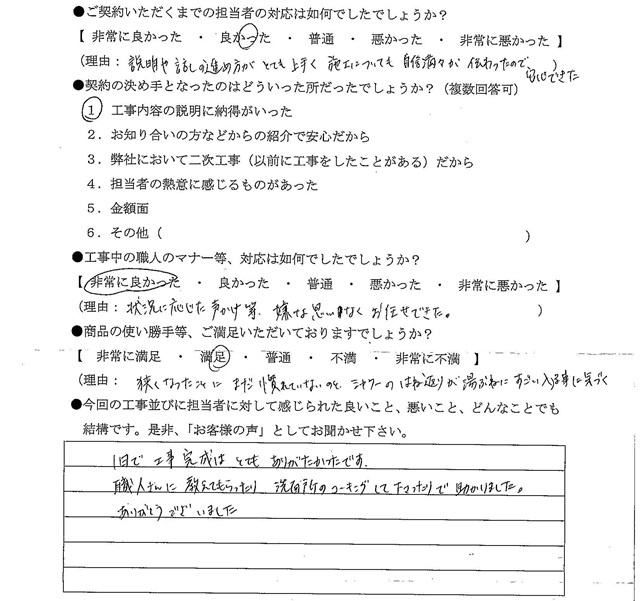 ●ご契約いただくまでの担当者の対応は如何でしたでしょうか？
【 非常に良かった ・ 良かった ・ 普通 ・ 悪かった ・ 非常に悪かった 】
（理由： 説明や話しの進め方がとても上手く 施工についても 自信満々が 伝わったので ）
安心できた
●契約の決め手となったのはどういった所だったでしょうか？（複数回答可）
1 工事内容の説明に納得がいった
2．お知り合いの方などからの紹介で安心だから
3．弊社において二次工事（以前に工事をしたことがある）だから
4．担当者の熱意に感じるものがあった
5．金額面
6．その他（ ）
●工事中の職人のマナー等、対応は如何でしたでしょうか？
【 非常に良かった ・ 良かった ・ 普通 ・ 悪かった ・ 非常に悪かった 】
（理由： 状況に応じた声かけ等、嫌な思いなく お任せできた。 ）
●商品の使い勝手等、ご満足いただいておりますでしょうか？
【 非常に満足 ・ 満足 ・ 普通 ・ 不満 ・ 非常に不満 】
（理由： 狭くなったことに まだ慣れていないのと、シャワーの はね返りが湯ぶねに すごい入る事に気づく
●今回の工事並びに担当者に対して感じられた良いこと、悪いこと、どんなことでも
結構です。是非、「お客様の声」としてお聞かせ下さい。
1日で 工事完成は とても ありがたかったです。
職人さんに 教えてもらったり 洗面所のコーキングして下さったりで 助かりました。
ありがとうございました